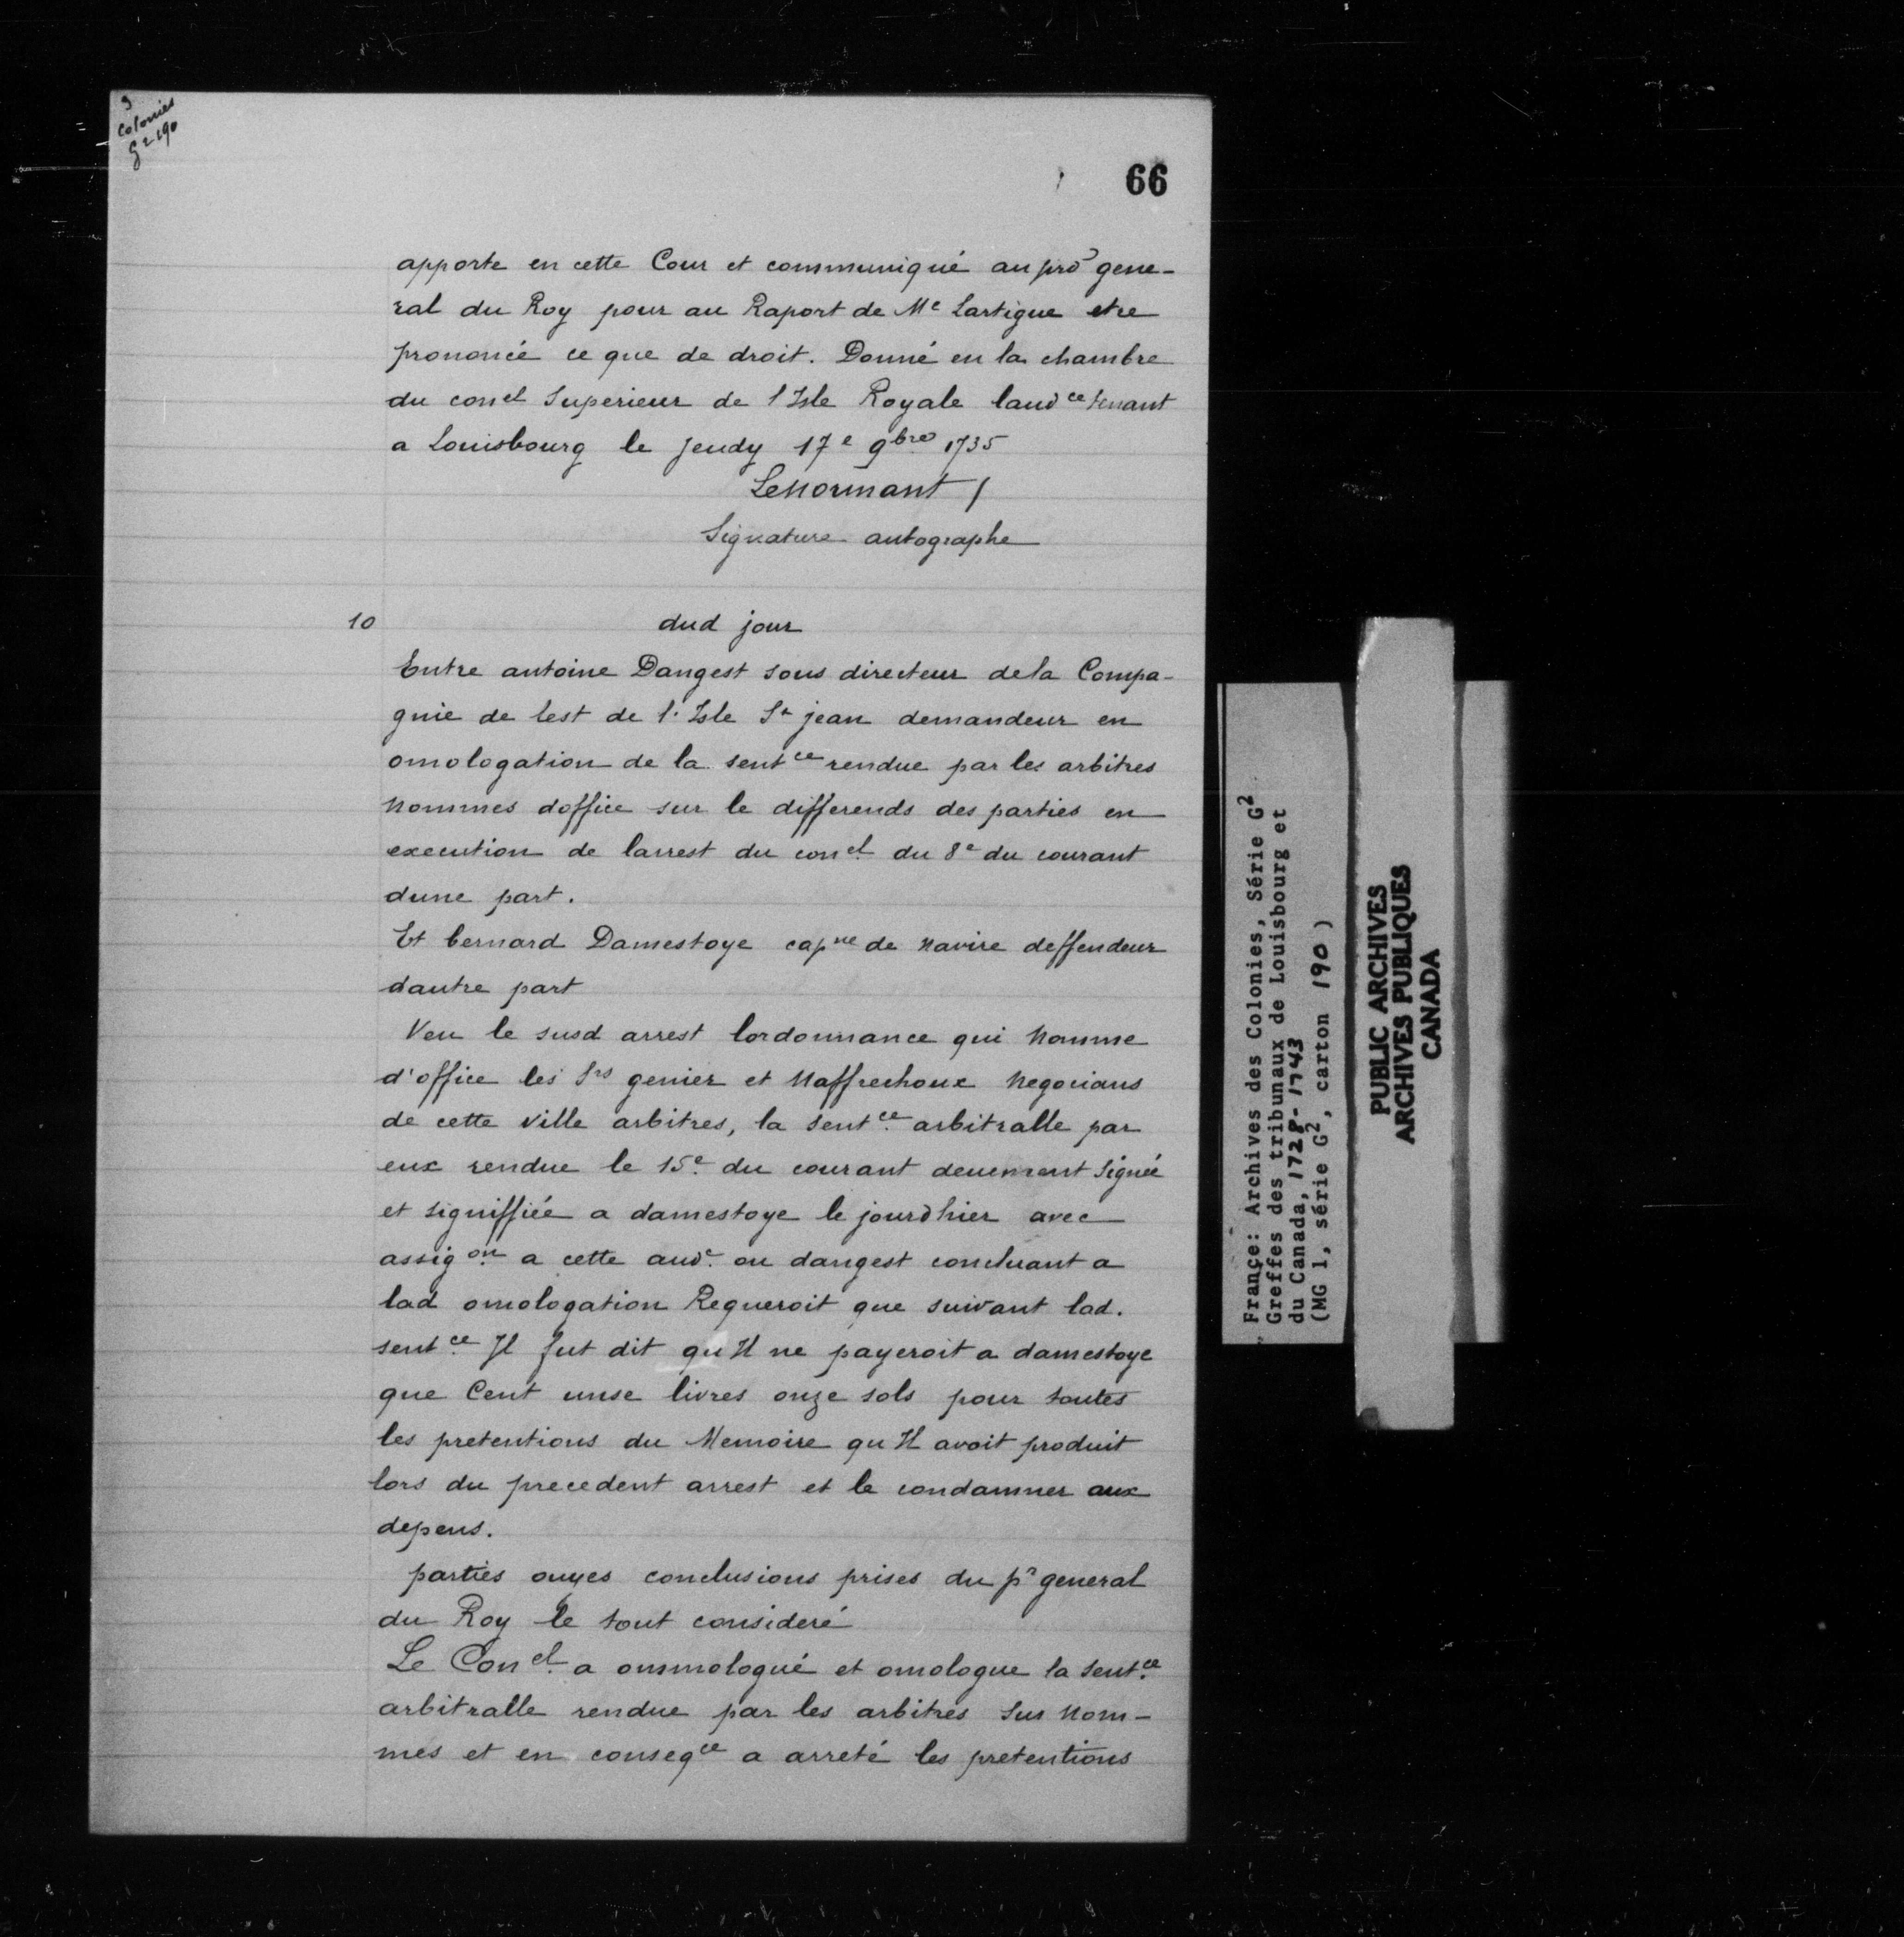 9
Colonies
G² 190
66
apporte en cette Cour et communiqué au pro gene-
ral du Roy pour au Raport de Me Lartigue etre
prononcé ce que de droit. Donné en la chambre
du conel Superieur de l'Isle Royale laudce tenant
a Louisbourg le Jeudy 17e 9bre 1735
Lenormant /
Signature autographe
10 dud jour
Entre antoine Dangest sous directeur dela Compa-
gnie de lest de l'Isle St jean demandeur en
omologation de la sentce rendue par les arbitres
nommes doffice sur le differends des parties en
execution de larrest du conel du 8e du courant
dune part.
Et bernard Damestoye capne de navire deffendeur
dautre part
Veu le susd arrest lordonnance qui nomme
d'office les Srs genier et Naffrechoux negocians
de cette ville arbitres, la sentce arbitralle par
eux rendue le 15e du courant deuement signée
et signiffiée a damestoye le jourdhier avec
assigon a cette aude ou dangest concluant a
lad omologation Requeroit que suivant lad.
sentce Il fut dit qu Il ne payeroit a damestoye
que Cent unse livres onze sols pour toutes
les pretentions du Memoire qu Il avoit produit
lors du precedent arrest et le condamner aux
depens.
parties ouyes conclusions prises du pr general
du Roy le tout consideré
Le Conel a ommologué et omologue la sentce
arbitralle rendue par les arbitres sus nom-
mes et en conseqce a arreté les pretentions
France: Archives des Colonies, Série G²
Greffes des tribunaux de Louisbourg et
du Canada, 1728-1743
(MG 1, série G², carton 190)
PUBLIC ARCHIVES
ARCHIVES PUBLIQUES
CANADA